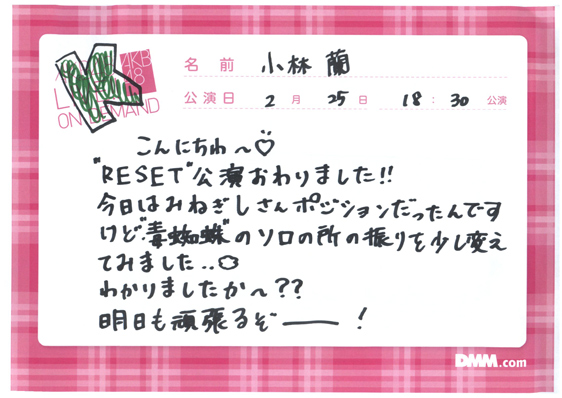 AKB
48
ON DEMAND
名前 小林蘭
公演日 2月25日 18:30公演
こんにちわ〜♡
"RESET"公演おわりました!!
今日はみねぎしさんポジションだったんです
けど"毒蜘蛛"のソロの所の振りを少し変え
てみました..
わかりましたか〜??
明日も頑張るぞ――!
DMM.com